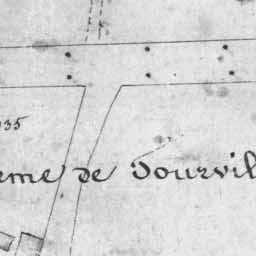 035
erme de Tourvil